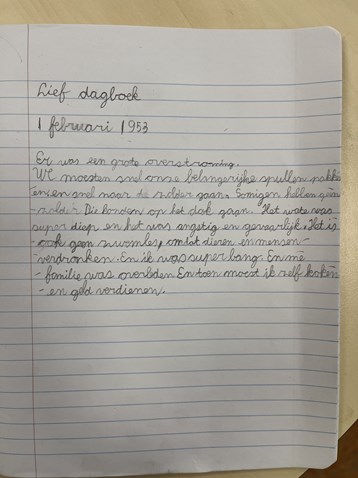 Lief dagboek
1 februari 1953
Er was een grote overstroming.
We moesten snel onze belangerijke spullen pakke
en en snel naar de solder gaan. Somigen hebben geen
solder Die konden op het dak gaan. Het wate was
super diep en het was angstig en gevaarlijk. Het is
ook geen zwemles, omdat dieren en mensen-
verdronken. En ik was super bang. En me
- familie was overleden En toen moest ik zelf koken
- en geld verdienen.